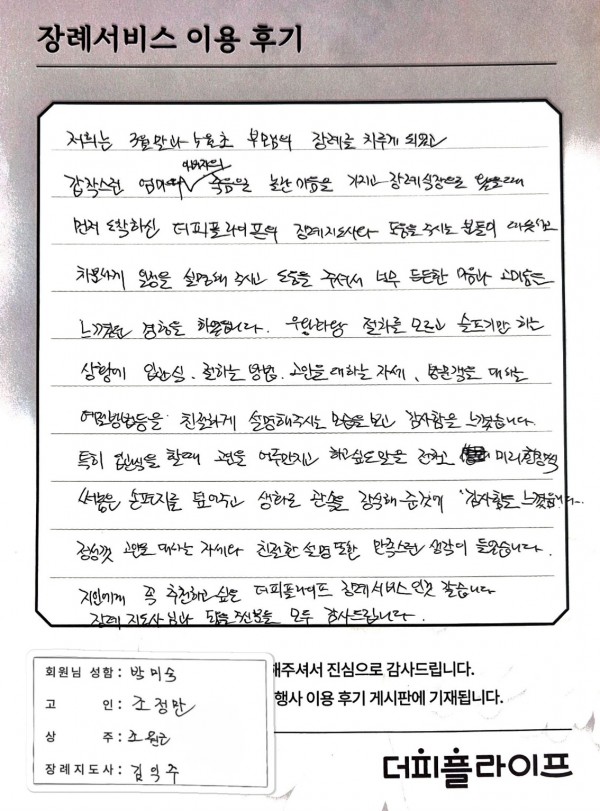 장례서비스 이용 후기
저희는 3월말과 4월초 부모님의 장례를 치루게 되었고
갑작스런 엄마와 아버지의 죽음을 놀란 마음을 가지고 장례식장으로
먼저 도착하신 더피플라이프의 장례지도사와 도움을 주시는 분들이
차분하게 일정을 설명해 주시고 도움을 주셔서 너무 든든한 마음과 고마움을
느꼈던 경험을 하였습니다. 절차를 모르고 슬프기만 하는
상황에 입관식, 절하는 방법, 고인을 대하는 자세, 방문객을 대하는
예절방법등을 친절하게 설명해주시는 모습을 보고 감사함을 느꼈습니다.
특히 입관식을 할때 고인을 어루만지고 하고싶은 말을 전하고 미리
써놓은 손편지를 덮어주고 생화로 관속을 장식해 준것에 감사함을 느꼈습니다..
정성껏 고인을 대하는 자세와 친절한 설명 또한 만족스런 생각이 들었습니다.
지인에게 꼭 추천하고 싶은 더피플라이프 장례서비스인것 같습니다
장례지도사님과 도움주신분들 모두 감사드립니다.
해주셔서 진심으로 감사드립니다.
행사 이용 후기 게시판에 기재됩니다.
회원님 성함 : 박미숙
고 인 : 조정만
상 주 : 조원근
장례지도사 : 김익주
더피플라이프